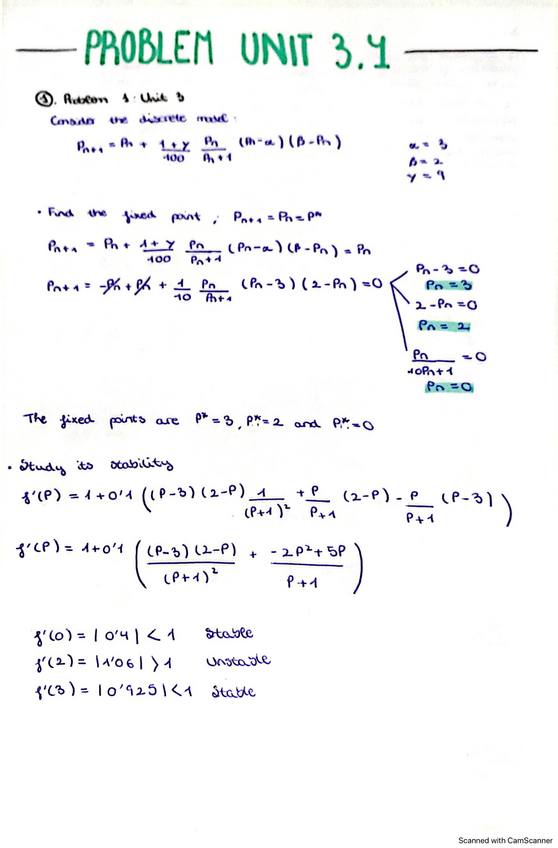 PROBLEM UNIT 3.1
①. Problem 1: Unit 3
Consider the discrete model:
Pn+1 = Pn + (1+γ)/100 Pn/(Pn+1) (Pn-α)(β-Pn)
α = 3
β = 2
γ = 9
• Find the fixed point ; Pn+1 = Pn = P*
Pn+1 = Pn + (1+γ)/100 Pn/(Pn+1) (Pn-α)(β-Pn) = Pn
Pn+1 = -Pn + Pn + 1/10 Pn/(Pn+1) (Pn-3)(2-Pn) = 0
Pn-3=0
Pn = 3
2-Pn=0
Pn = 2
Pn/(10Pn+1) = 0
Pn=0
The fixed points are P*=3, P**=2 and P***=0
• Study its stability
f'(P) = 1+0'1 ((P-3)(2-P) 1/(P+1)² + P/(P+1) (2-P) - P/(P+1) (P-3))
f'(P) = 1+0'1 ((P-3)(2-P)/(P+1)² + (-2P²+5P)/(P+1))
f'(0) = |0'4| < 1 Stable
f'(2) = |1'06| > 1 Unstable
f'(3) = |0'925| < 1 Stable
Scanned with CamScanner